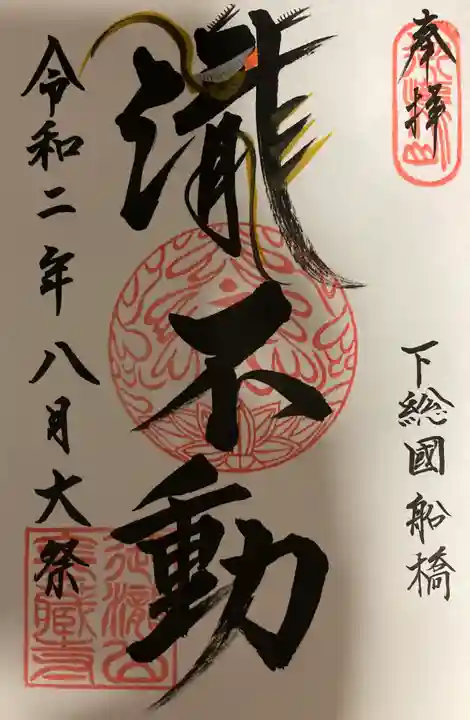 奉拝
下総國船橋
瀧不動
令和二年八月大祭